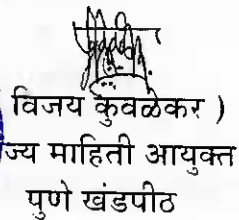 विजय कुवळेकर )
ज्य माहिती आयुक्त
पुणे खंडपीठ